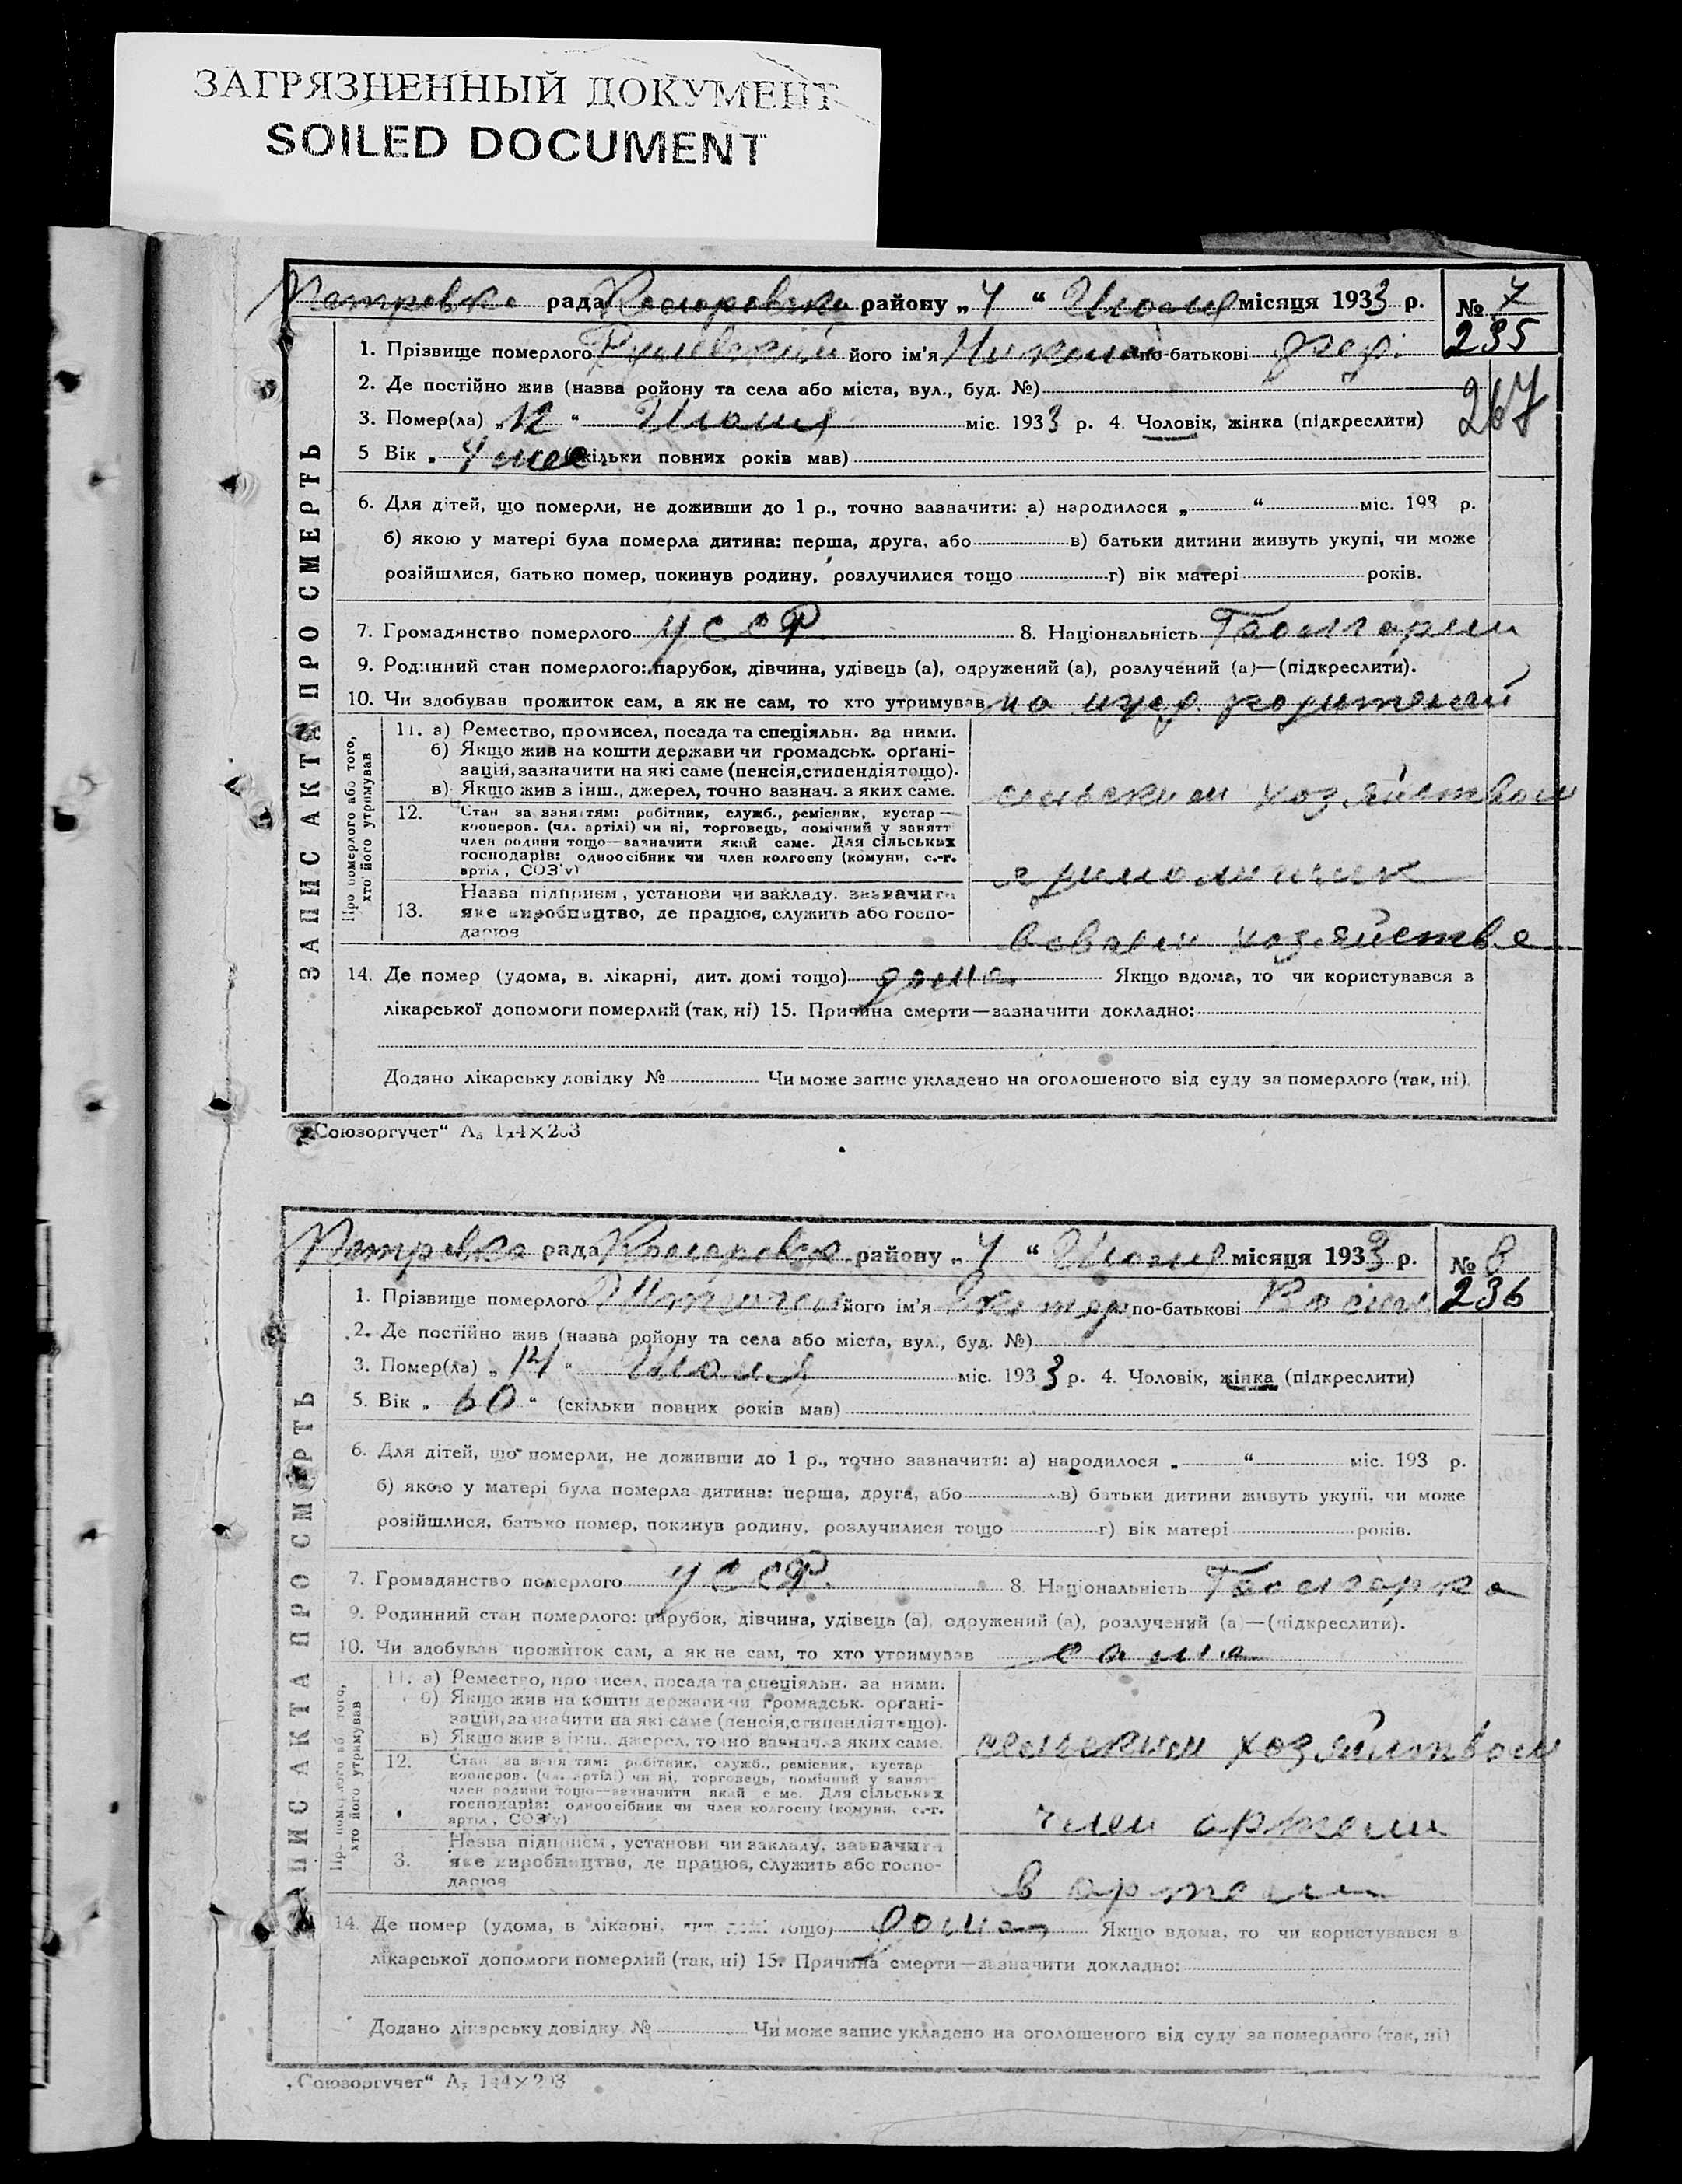 ЗАГРЯЗНЕННЫЙ ДОКУМЕНТ
SOILED DOCUMENT
ЗАПИС АКТА ПРО СМЕРТЬ
Петровка рада району „ “ місяця 1933 р. № 7
235
1. Прізвище померлого його ім'я Николай по-батькові
267
2. Де постійно жив (назва району та села або міста, вул., буд. №)
3. Помер(ла) „12“ міс. 1933 р. 4. Чоловік, жінка (підкреслити)
5 Вік „4 мес. скільки повних років мав)
6. Для дітей, що померли, не доживши до 1 р., точно зазначити: а) народилося „ “ міс. 193 р.
б) якою у матері була померла дитина: перша, друга, або в) батьки дитини живуть укупі, чи може
розійшлися, батько помер, покинув родину, розлучилися тощо г) вік матері років.
7. Громадянство померлого УССР. 8. Національність
9. Родинний стан померлого: парубок, дівчина, удівець (а), одружений (а), розлучений (а)—(підкреслити).
10. Чи здобував прожиток сам, а як не сам, то хто утримував на ижд. родителей
Про померлого або того, хто його утримував
11. а) Ремество, промисел, посада та спеціяльн. за ними.
б) Якщо жив на кошти держави чи громадськ. орґані-
зацій, зазначити на які саме (пенсія, стипендія тощо).
в) Якщо жив з інш., джерел, точно зазнач. з яких саме.
сельским хозяйством
12. Стан за заняттям: робітник, служб., ремісник, кустар—
кооперов. (чл. артілі) чи ні, торговець, помічний у занятт
член родини тощо—зазначити який саме. Для сільських
господарів: одноосібник чи член колгоспу (комуни, с.-г.
артіл, СОЗ'у)
единоличник
13. Назва підприєм, установи чи закладу. зазначити
яке виробництво, де працює, служить або госпо-
дарює
в своем хозяйстве
14. Де помер (удома, в. лікарні, дит. домі тощо) дома Якщо вдома, то чи користувався з
лікарської допомоги померлий (так, ні) 15. Причина смерти—зазначити докладно:
Додано лікарську довідку № Чи може запис укладено на оголошеного від суду за померлого (так, ні).
„Союзоргучет“ А₅ 144×203
ЗАПИС АКТА ПРО СМЕРТЬ
Петровка рада району „ “ місяця 1933 р. № 8
236
1. Прізвище померлого його ім'я по-батькові
2. Де постійно жив (назва району та села або міста, вул., буд. №)
3. Помер(ла) „14“ міс. 1933 р. 4. Чоловік, жінка (підкреслити)
5. Вік „ 60 “ (скільки повних років мав)
6. Для дітей, що померли, не доживши до 1 р., точно зазначити: а) народилося „ “ міс. 193 р.
б) якою у матері була померла дитина: перша, друга, або в) батьки дитини живуть укупі, чи може
розійшлися, батько помер, покинув родину, розлучилися тощо г) вік матері років.
7. Громадянство померлого УССР. 8. Національність
9. Родинний стан померлого: парубок, дівчина, удівець (а), одружений (а), розлучений (а)—(підкреслити).
10. Чи здобував прожиток сам, а як не сам, то хто утримував сама
Про померлого або того, хто його утримував
11. а) Ремество, промисел, посада та спеціяльн. за ними.
б) Якщо жив на кошти держави чи громадськ. орґані-
зацій, зазначити на які саме (пенсія, стипендія тощо).
в) Якщо жив з інш., джерел, точно зазнач. з яких саме.
сельским хозяйством
12. Стан за заняттям: робітник, служб., ремісник, кустар
кооперов. (чл. артілі) чи ні, торговець, помічний у занят
член родини тощо—зазначити який саме. Для сільських
господарів: одноосібник чи член колгоспу (комуни, с.-г.
артіл, СОЗ'у)
член артели
3. Назва підприєм, установи чи закладу, зазначити
яке виробництво, де працює, служить або госпо-
дарює
в артели
14. Де помер (удома, в лікарні, дит домі тощо) дома Якщо вдома, то чи користувався з
лікарської допомоги померлий (так, ні) 15. Причина смерти—зазначити докладно:
Додано лікарську довідку № Чи може запис укладено на оголошеного від суду за померлого (так, ні)
„Союзоргучет“ А₅ 144×203